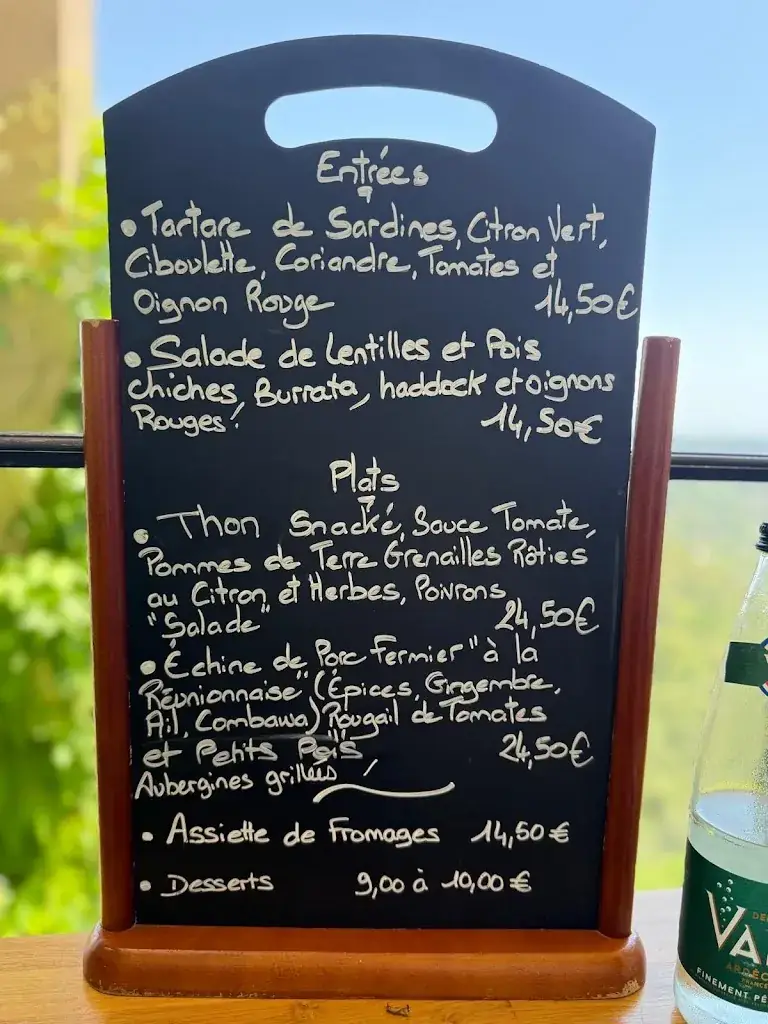 Entrées
• Tartare de Sardines, Citron Vert,
Ciboulette, Coriandre, Tomates et
Oignon Rouge 14,50€
• Salade de Lentilles et Pois
chiches, Burrata, haddock et oignons
Rouges! 14,50€
Plats
• Thon Snacké, Sauce Tomate,
Pommes de Terre Grenailles Rôties
au Citron et Herbes, Poivrons
"Salade" 24,50€
• Échine de Porc Fermier "à la
Réunionnaise" (Épices, Gingembre,
Ail, Combawa) Rougail de Tomates
et Petits Pois 24,50€
Aubergines grillées /
• Assiette de Fromages 14,50€
• Desserts 9,00 à 10,00€
VA
ARDÈC
FRANCE
FINEMENT PÉ